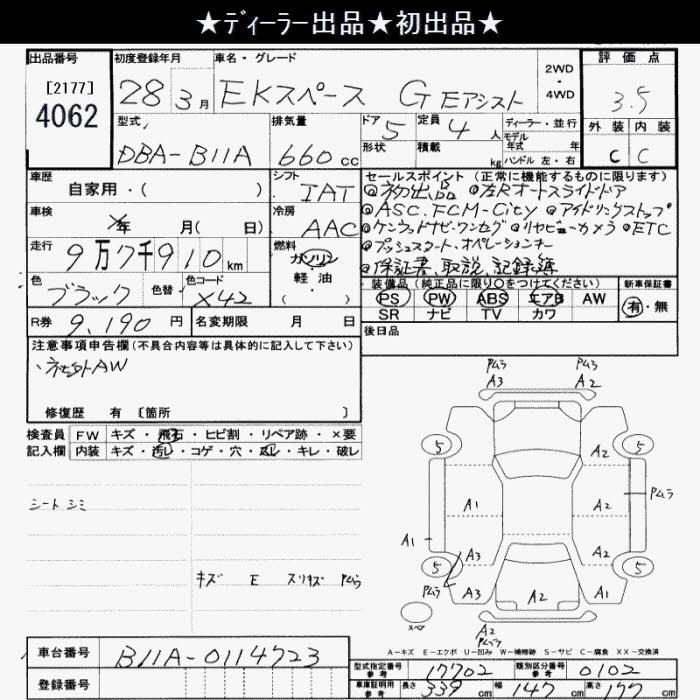 ★ディーラー出品★初出品★
出品番号
[2177]
4062
初度登録年月
28 3月
車名・グレード
EKスペース G Eアシスト
2WD
・
4WD
評価点
3.5
外装 内装
C C
型式
DBA-B11A
排気量
660cc
ドア 5
形状
定員 4人
積載 kg
ディーラー・並行
モデル
年式 年
ハンドル 左・右
車歴
自家用・( )
シフト
IAT
車検
年 月( 日)
冷房
AAC
走行
9万7千910km
燃料
ガソリン
軽・油
・( )
色
ブラック
色替
色コード
X42
R券
9,190円
名変期限 月 日
セールスポイント(正常に機能するものに限ります)
◎初出品 ◎左Rオートスライドドア
◎ASC.FCM-City ◎アイドリングストップ
◎ケンウッドナビ・ワンセグ ◎リヤビューカメラ ◎ETC
◎プッシュスタート・オペレーションキー
◎保証書、取説、記録簿
装備品(純正品に限り○をつけてください)
PS PW ABS エアB AW
SR ナビ TV カワ
新車保証書
有・無
後日品
注意事項申告欄(不具合内容等は具体的に記入して下さい)
・社外AW
修復歴 有 〔箇所 〕
検査員
記入欄
FW キズ・飛石・ヒビ割・リペア跡・×要
内装 キズ・汚れ・コゲ・穴・スレ・キレ・破レ
シートシミ
キズ E スリキズ PムラP
PムラA3
PムラA2
5
5
A2
A1
A2
Pムラ
A1
A3
A2
5
5
Pムラ
A3
A2
A1
スペア
A2
Pムラ
A-キズ E-エクボ U-凹み W-補修跡 S-サビ C-腐食 XX-交換済
車台番号
B11A-0114723
登録番号
型式指定番号
参考
17702
類別区分番号
参考
0102
車庫証明用
参考
長さ 339cm 幅 147cm 高さ 177cm